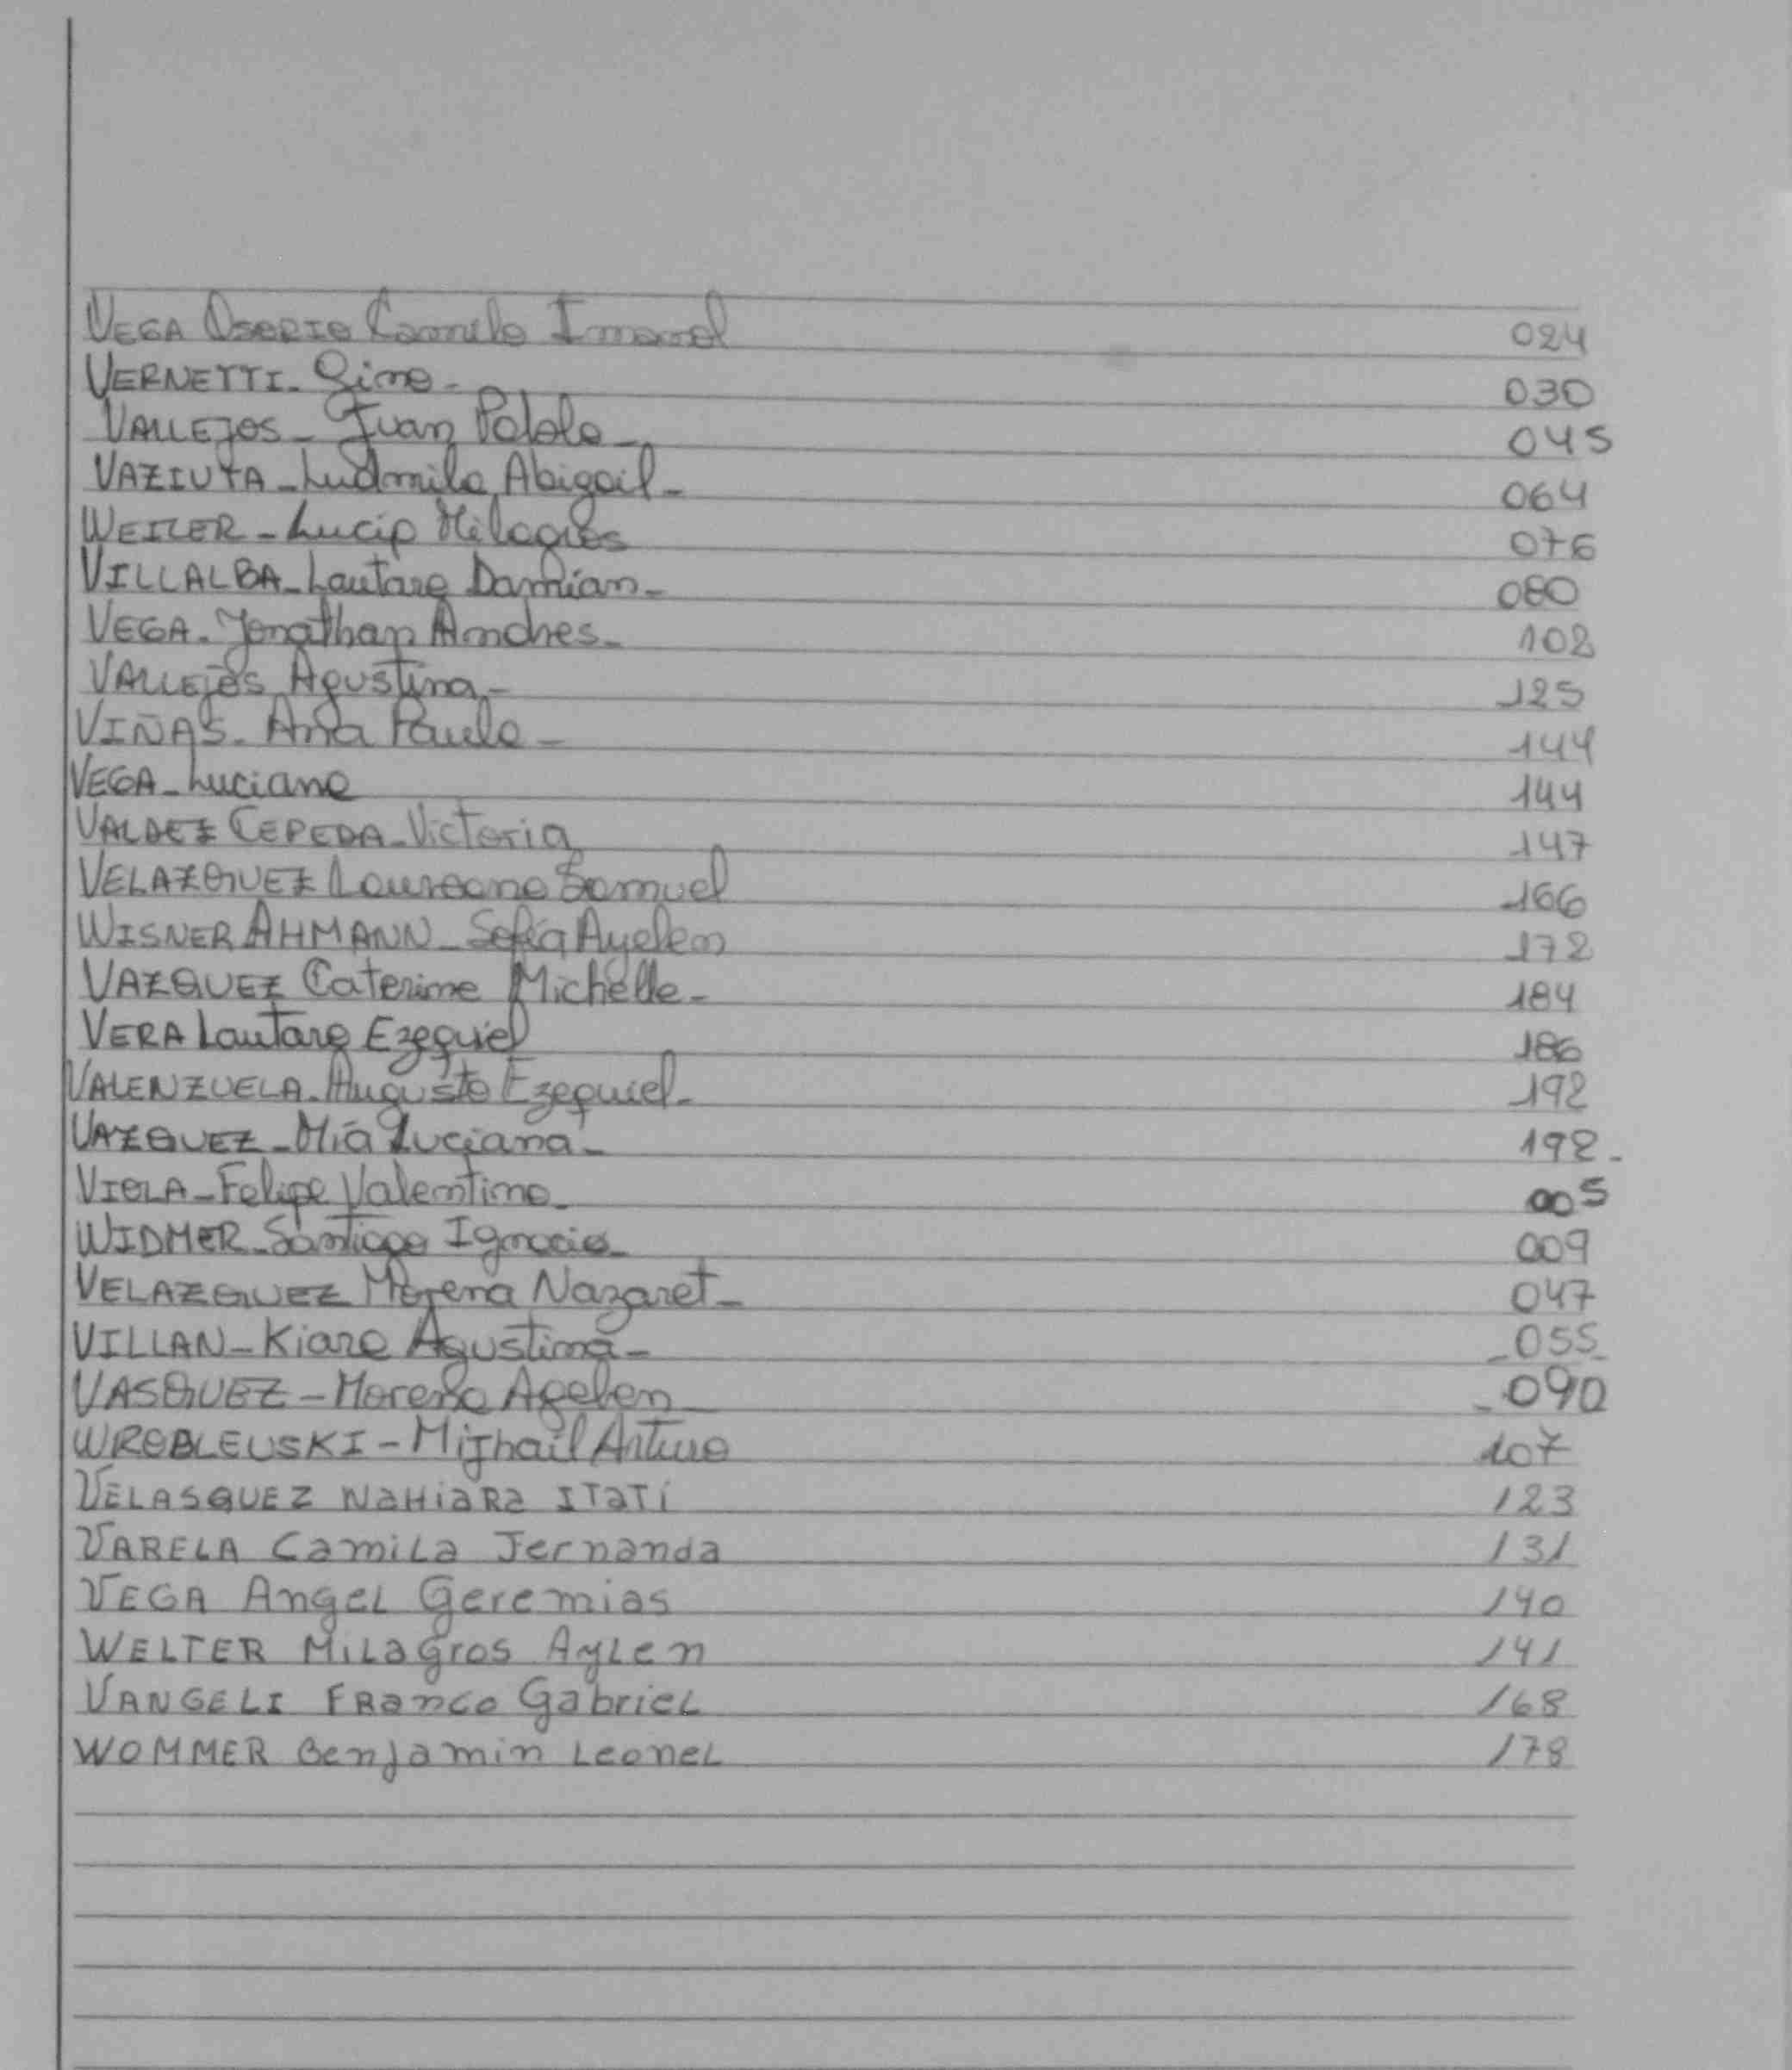 VEGA OSORIO Camilo Imanol 024
VERNETTI - Gino - 030
VALLEJOS - Juan Pablo - 045
VAZIUTA - Ludmila Abigail - 064
WEILER - Lucia Milagros 076
VILLALBA - Lautaro Damián - 080
VEGA - Jonathan Andres - 102
VALLEJOS Agustina - 125
VIÑAS - Ana Paula - 144
VEGA - Luciano 144
VALDEZ CEPEDA - Victoria 147
VELAZQUEZ Laureano Samuel 166
WISNER AHMANN - Sofía Ayelen 172
VAZQUEZ Caterine Michelle - 184
VERA Lautaro Ezequiel 186
VALENZUELA - Augusto Ezequiel - 192
VAZQUEZ - Mía Luciana - 192 -
VIOLA - Felipe Valentino - 005
WIDMER - Santiago Ignacio - 009
VELAZQUEZ Morena Nazaret - 047
VILLAN - Kiara Agustina - 055
VASQUEZ - Morena - 090
WROBLEUSKI - Mijhail Arturo 107
VELASQUEZ NaHiaRa ITaTí 123
VARELA Camila Fernanda 131
VEGA Angel Geremias 140
WELTER Milagros Aylen 141
VANGELI Franco Gabriel 168
WOMMER Benjamin Leonel 178